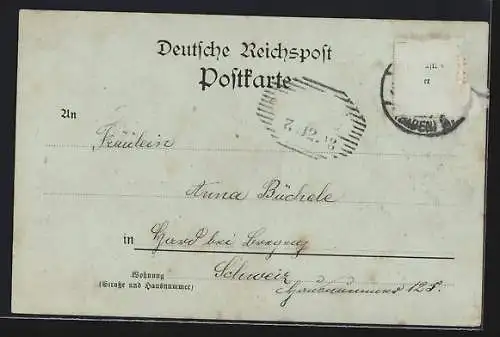 Deutsche Reichspost
Postkarte
An
Fräulein
Anna Büchele
in Hard bei Bregenz
Schweiz
Wohnung
(Straße und Hausnummer)
Hausnummero 125.
7.12.
(BADEN)